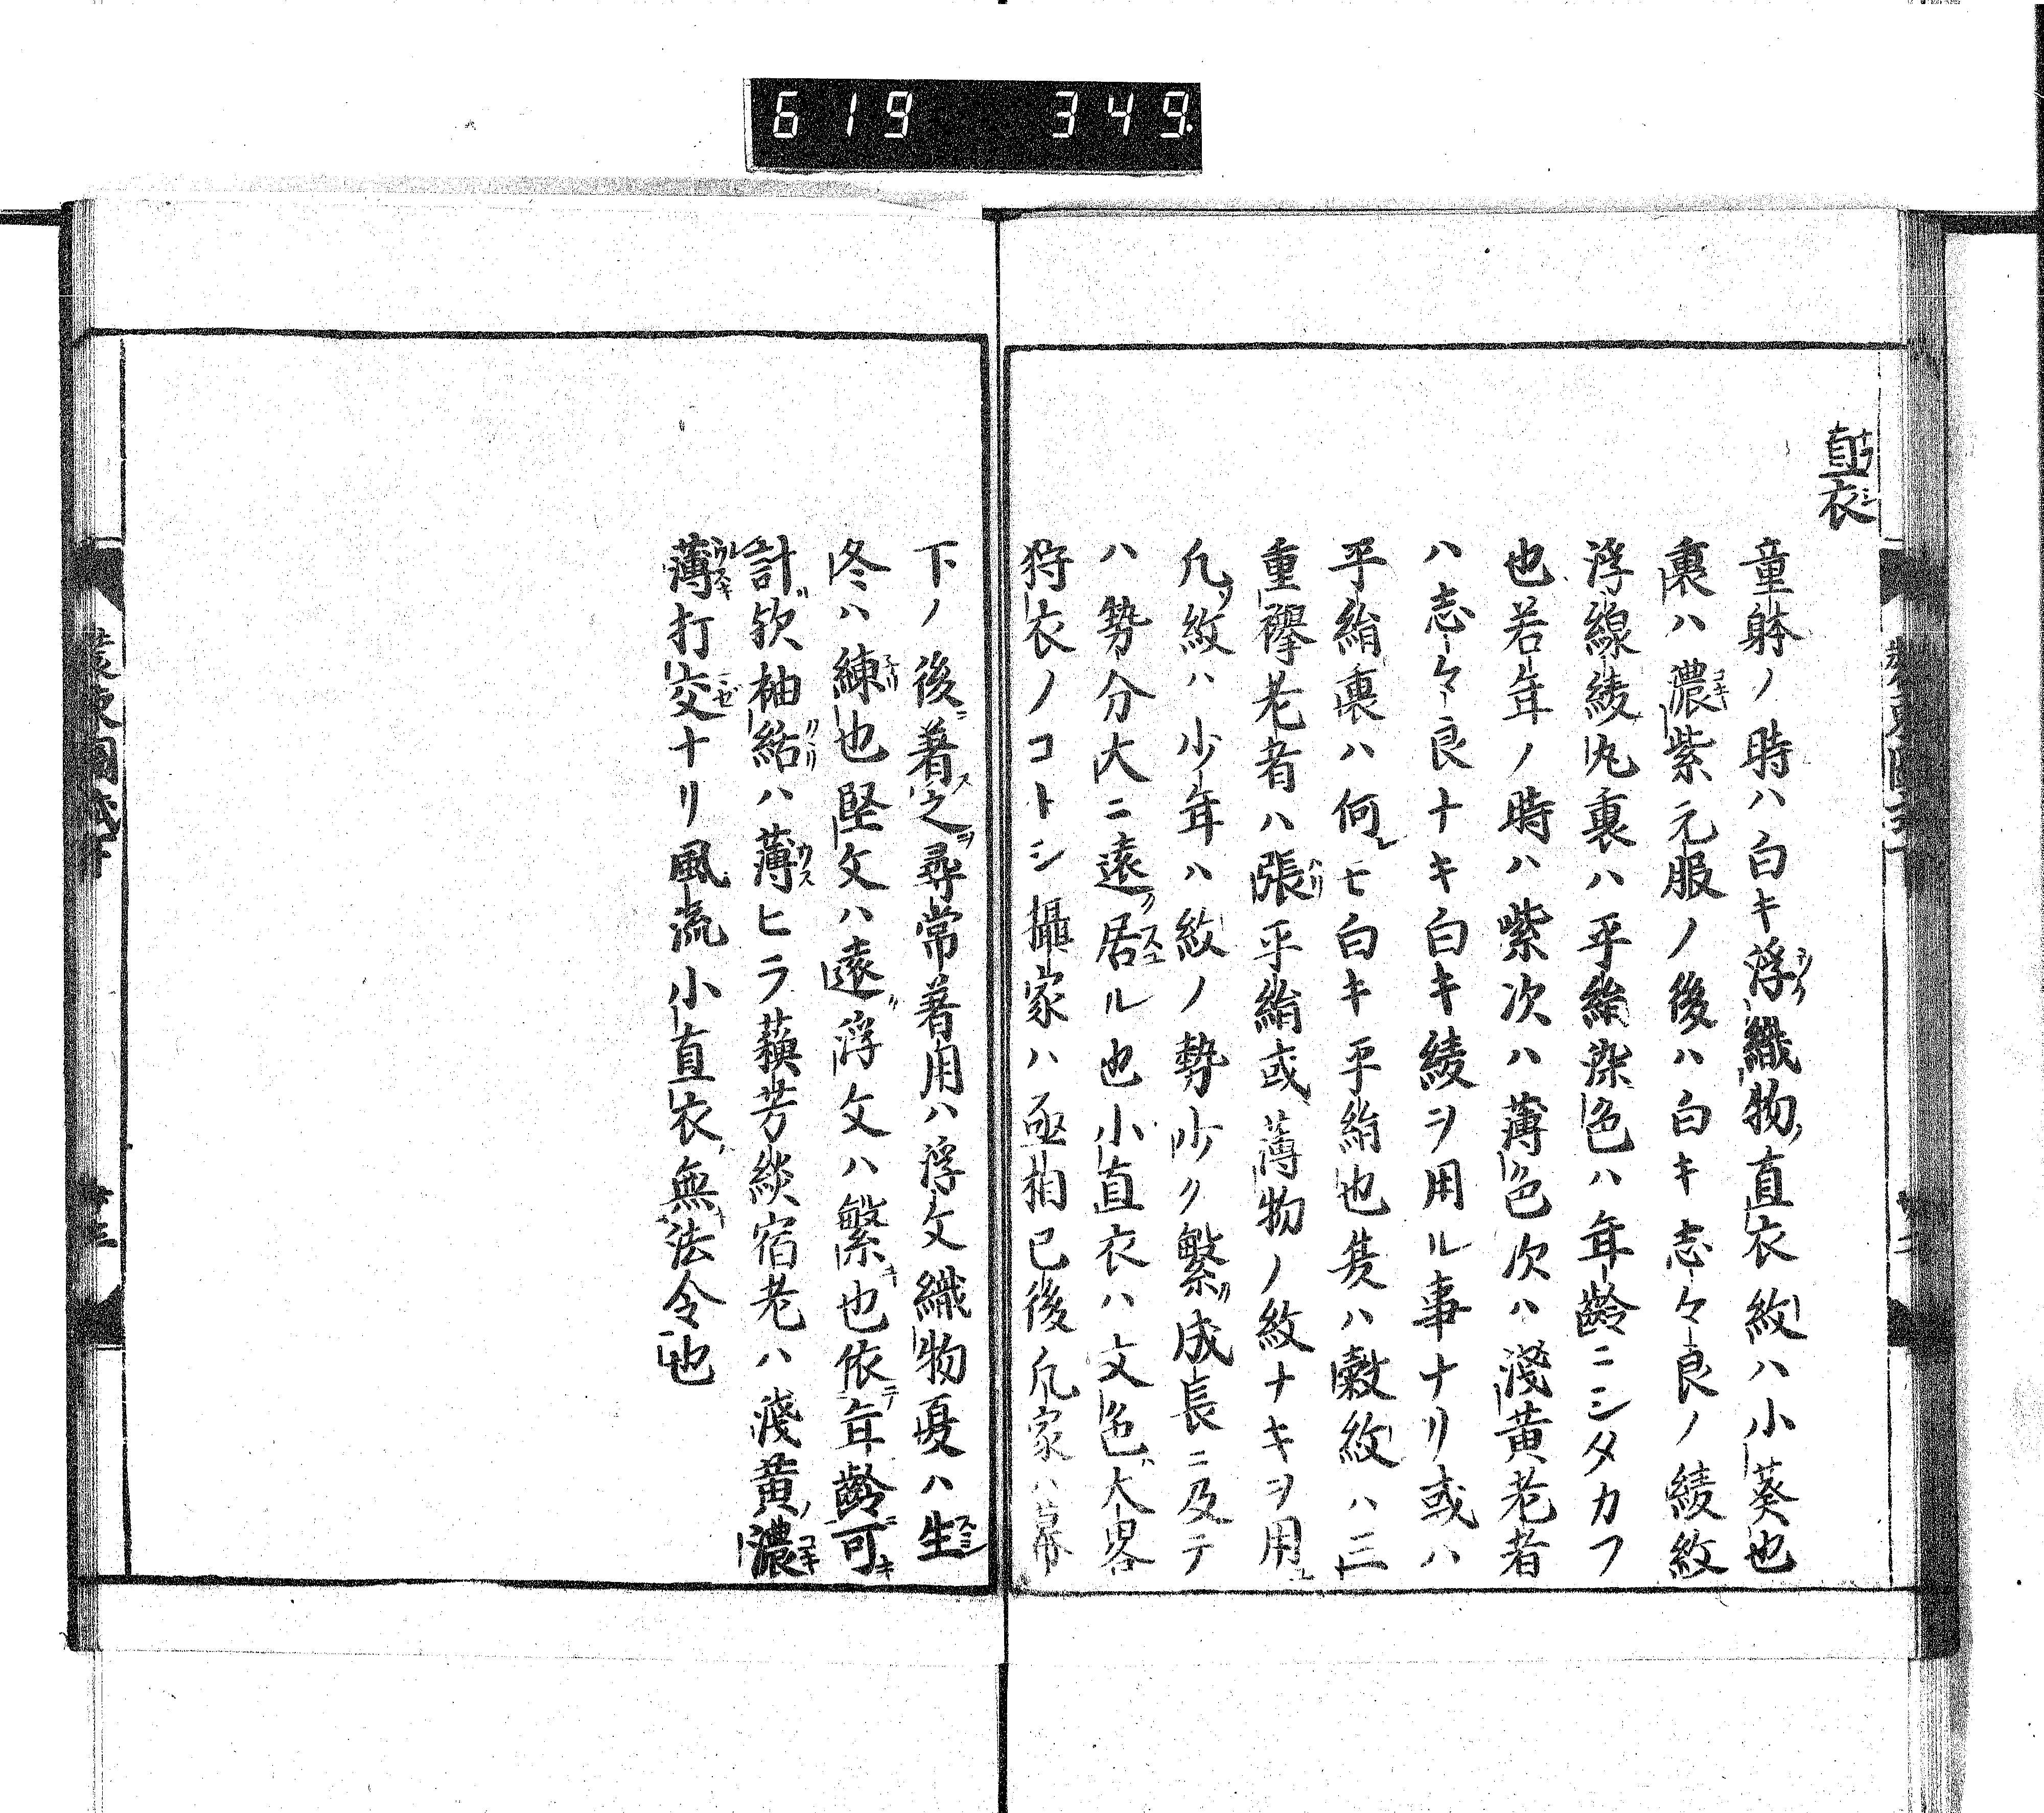 619 349
直衣
童躰ノ時ハ白キ浮織物直衣紋ハ小葵也
裏ハ濃紫元服ノ後ハ白キ志々良ノ綾紋
浮線綾丸裏ハ平絹染色ハ年齢ニシタカフ
也若年ノ時ハ紫次ハ薄色次ハ淺黄老者
ハ志々良ナキ白キ綾ヲ用ル事ナリ或ハ
平絹裏ハ何モ白キ平絹也夏ハ縠紋ハ三
重襷老者ハ張平絹或薄物ノ紋ナキヲ用
凢紋ハ少年ハ紋ノ勢少ク繁成長ニ及テ
ハ勢分大ニ遠居ル也小直衣ハ文色大畧
狩衣ノコトシ攝家ハ亟相已後凢家ハ幕
下ノ後着之尋常着用ハ浮文織物夏ハ生
冬ハ練也堅文ハ遠浮文ハ繁也依年齢可
計欤柚結ハ薄ヒラ蘓芳緂宿老ハ淺黄濃
薄打交ナリ風流小直衣無法令也
装束圖式下